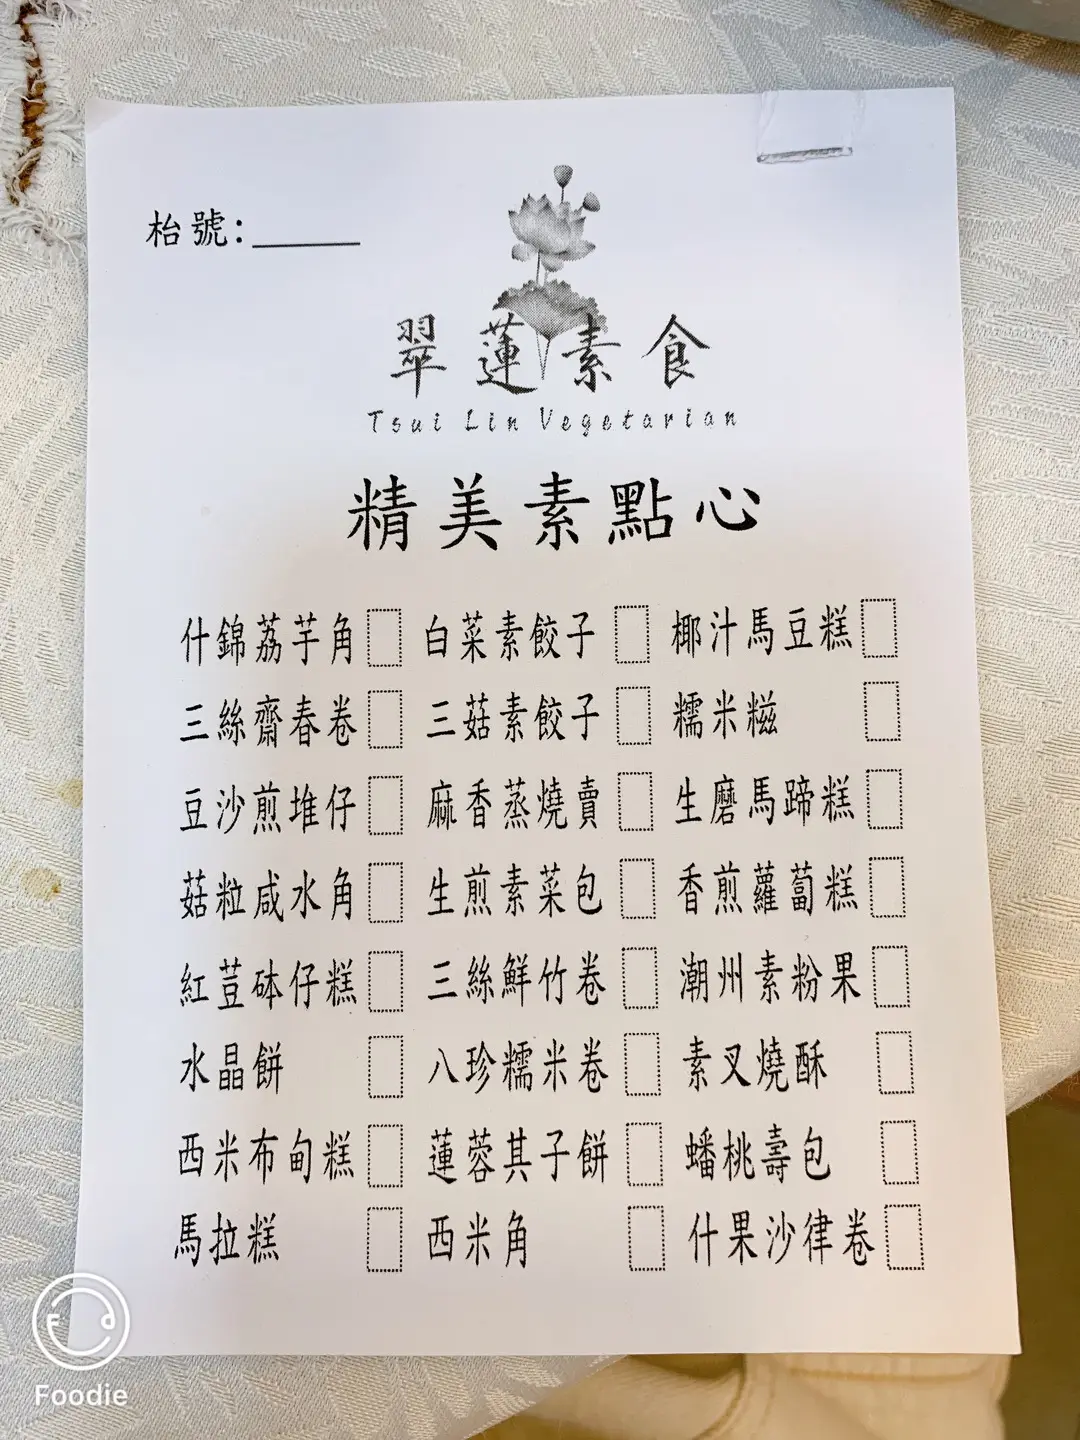 枱號：
翠蓮素食
Tsui Lin Vegetarian
精美素點心
什錦荔芋角 白菜素餃子 椰汁馬豆糕
三絲齋春卷 三菇素餃子 糯米糍
豆沙煎堆仔 麻香蒸燒賣 生磨馬蹄糕
菇粒咸水角 生煎素菜包 香煎蘿蔔糕
紅荳砵仔糕 三絲鮮竹卷 潮州素粉果
水晶餅 八珍糯米卷 素叉燒酥
西米布甸糕 蓮蓉其子餅 蟠桃壽包
馬拉糕 西米角 什果沙律卷
Foodie